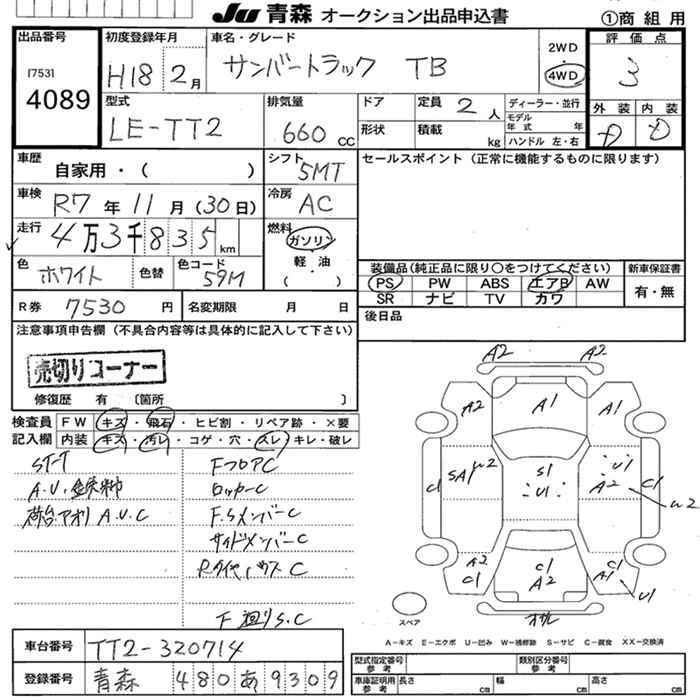 JU 青森 オークション出品申込書
①商 組 用
出品番号
17531
4089
初度登録年月
H18 2月
車名・グレード
サンバートラック TB
2WD
・
4WD
評価点
3
型式
LE-TT2
排気量
660 cc
ドア
形状
定員 2 人
積載 kg
ディーラー・並行
モデル年式 年
ハンドル 左・右
外装
D
内装
D
車歴
自家用・( )
シフト
5MT
セールスポイント(正常に機能するものに限ります)
車検
R7年11月(30日)
冷房
AC
走行
4万3千835km
燃料
ガソリン
軽油
・
( )
色
ホワイト
色替
色コード
59M
装備品(純正品に限り〇をつけてください)
PS PW ABS エアB AW
SR ナビ TV カワ
新車保証書
有・無
R券 7530 円
名変期限 月 日
後日品
注意事項申告欄(不具合内容等は具体的に記入して下さい)
売切りコーナー
修復歴 有 〔箇所 〕
検査員記入欄
FW キズ・飛石・ヒビ割・リペア跡・×要
内装 キズ・汚レ・コゲ・穴・スレ・キレ・破レ
ST-T
A.U.
荷台アオリ A.U.C
FフロアC
ロッカーC
F.SメンバーC
サイドメンバーC
F廻りS.C
A2 A2
A2 A1 A1
C1 SA1 u2 S1 U1 U1 A2 C1 u2
A2 C1 C1 A2 C1 A1 U1
スペア
A-キズ E-エクボ U-凹み W-補修跡 S-サビ C-腐食 XX-交換済
車台番号
TT2-320714
登録番号
青森 480 あ 9309
型式指定番号
参考
類別区分番号
参考
車庫証明用
参考
長さ cm 幅 cm 高さ cm